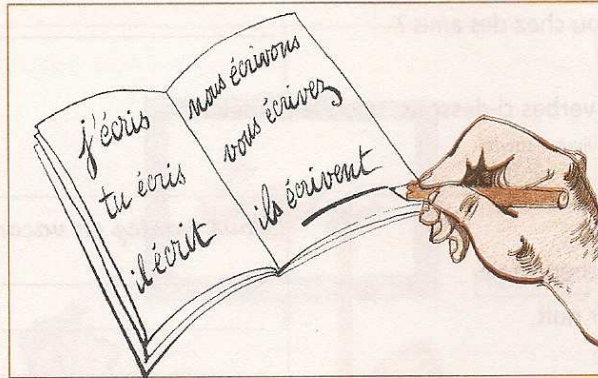 j'écris
tu écris
il écrit
nous écrivons
vous écrivez
ils écrivent